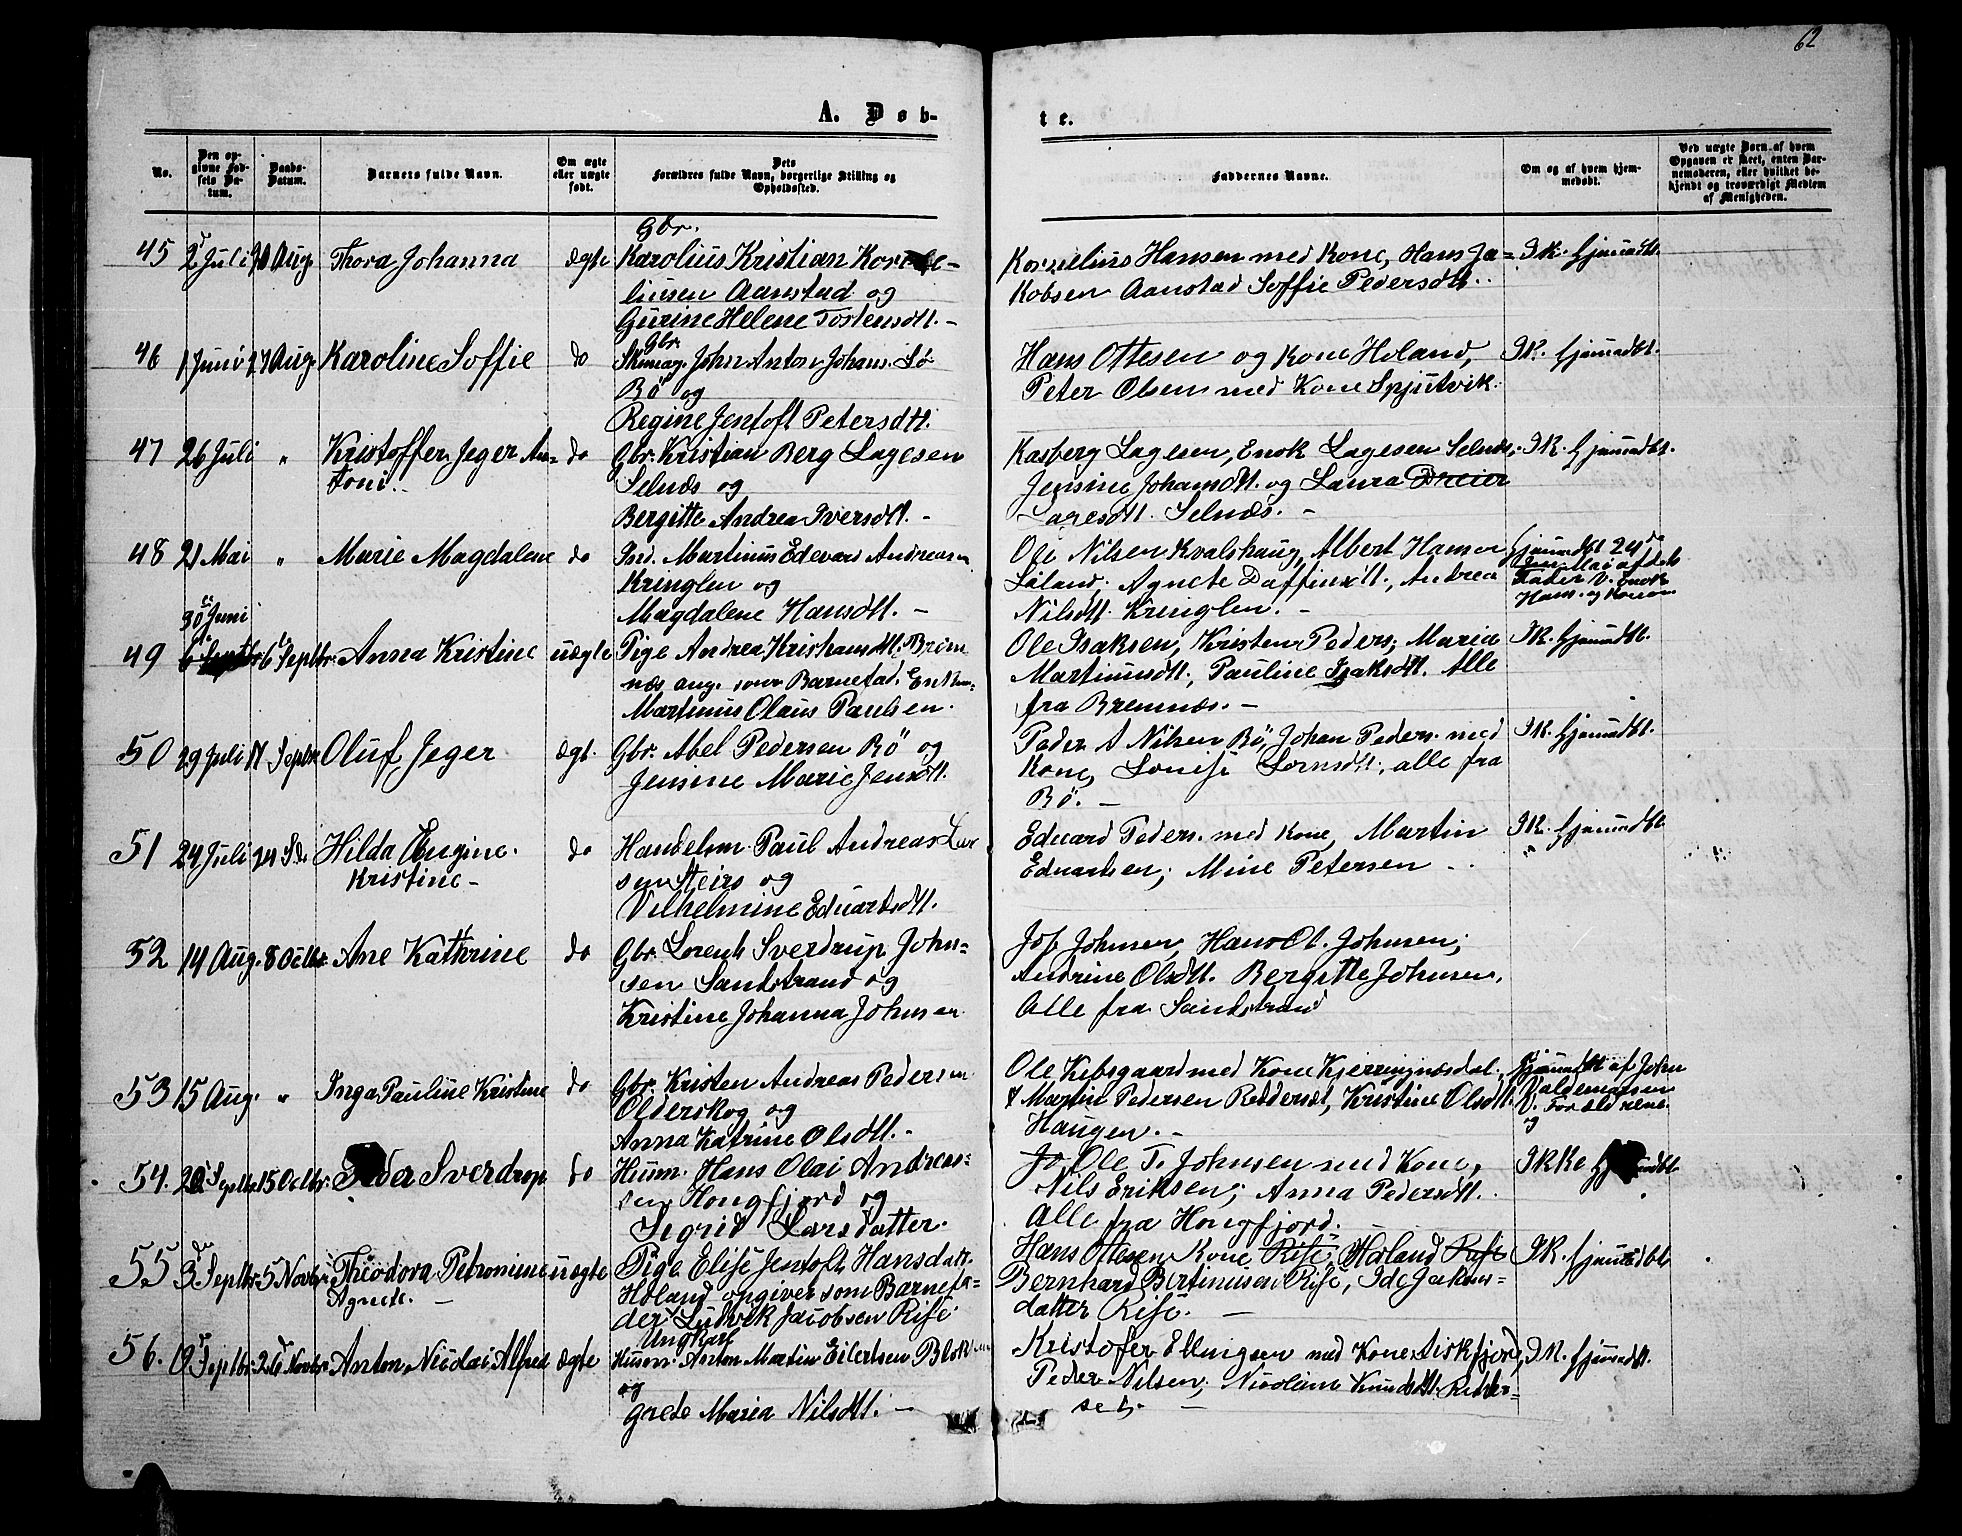 62
A. Døb-
te.
No.
Den op-
givne Fød-
sels Da-
tum.
Daabs-
Datum.
Barnets fulde Navn.
Om ægte
eller uægte
født.
Dets
Forældres fulde Navn, borgerlige Stilling og
Opholdssted.
Faddernes Navne.
Om og af hvem hjem-
medøbt.
Ved uægte Børn, af hvem
Opgaven er skeet, enten Bar-
nemoderen, eller hvilket be-
kjendt og troværdigt Medlem
af Menigheden.
45 2 Juli 20 Aug. Thora Johanna ægte Gbr.
Karolius Kristian Korne-
liusen Aanstad og
Gurine Helene Tostensdtt. -
Kornelius Hansen med Kone, Hans Ja-
kobsen Aanstad Soffie Pedersdtt.
Ik. hjemmdbt.
46 1 Juni 27 Aug Karoline Soffie do Gbr
Skomag. John Anton Johans.
Bö og
Regine Jentoft Petersdtt.
Hans Ottesen og Kone Holand,
Peter Olsen med Kone Spjutvik.
Ik. hjemmdbt.
47 26 Juli " Kristoffer Jeger An-
toni. do Gbr. Kristian Berg Lagesen
Selnæs og
Bergitte Andrea Iversdtt. -
Kasberg Lagesen, Enok Lagesen Selnæs,
Jensine Johansdtt. og Laura Dreier
Lagesdtt. Selnæs. -
Ik. hjemmdbt.
48 21 Mai " Marie Magdalene do Martinus Edevard Andreasen
Kringlen og
Magdalene Hansdtt. -
Ole Nilsen Kvalshaug, Albert Hansen
Agnete Daffinsdtt., Andrea
Nilsdtt. Kringlen. -
hjemmdbt 24de
Mai af dets
Fader v. Enok
Hans. og Konen
49 30 Juni
6 Septbr. Anna Kristine uægte Pige Andrea Kristiansdtt. Brem
næs ang. som Barnefad. Enkem.
Martinus Olaus Paulsen.
Ole Isaksen, Kristen Peders., Maria
Martinusdtt., Pauline Isaksdtt. Alle
fra Bremnæs. -
Ik. hjemmdbt.
50 29 Juli 17 Septbr. Oluf Jeger ægt. Gbr. Abel Pedersen Bö og
Jensine Marie Jensdtt.
Peder A Nilsen Bö, Johan Peders. med
Kone, Lovise Lornsdtt., alle fra
Bö. -
Ik. hjemmdbt.
51 24 Juli 24 S. Hilda Eugine
Kristine - do Handelsm. Paul Andreas Lar
sen Steirs og
Vilhelmine Eduardsdtt.
Eduard Peders. med Kone, Martin
Eduardsen; Mine Petersen
Ik. hjemmdbt
52 14 Aug. 8 Octbr. Ane Kathrine do Gbr. Lorents Sverdrup John-
sen Sandstrand og
Kristine Johanna Johnsen
Johnsen, Hans Ol. Johnsen;
Andrine Olsdtt. Bergitte Johnsen,
Alle fra Sandstrand
53 15 Aug. " Inga Pauline Kristine do Gbr. Kristen Andreas Pedersen
Olderskog og
Anna Katrine Olsdtt. -
Ole Kibsgaard med Kone Kjerringnæsdal.,
Martin Pedersen Reddersæt, Kristine Olsdtt.
Haugen. -
hjemmdbt af John
Valdemarsen
v. Forældrene
54. 20 Septbr. 15 Octbr. Peder Sverdrup do Husm. Hans Olai Andreas-
sen Hongfjord og
Sigrid Larsdatter.
Jo Ole T. Johnsen med Kone,
Nils Eriksen; Anna Pedersdtt.
Alle fra Hongfjord.
Ikke hjemmdbt
55 3 Septbr. 5 Novbr. Theodora Petronine
Agnete. - uægte Pige Elise Jentoft Hansdatt.
Holand opgivet som Barnefa-
der Ludvik Jacobsen Rise
Ungkarl
Hans Ottesen Kone Rise, Holand Rise
Bernhard Bertinusen Rise, Ide Jakobs-
datter Rise. -
Ik. hjemmdbt
56. Septbr. 26 Novbr. Anton Nicolai Alfred ægte Husm. Anton Martin Eilertsen Blok
og
Grete Maria Nilsdtt. -
Kristofer Ellingsen med Kone Eiskfjord,
Peder Nilsen; Nicoline Knudsdtt. Redder-
set. -
Ik. hjemmdt.